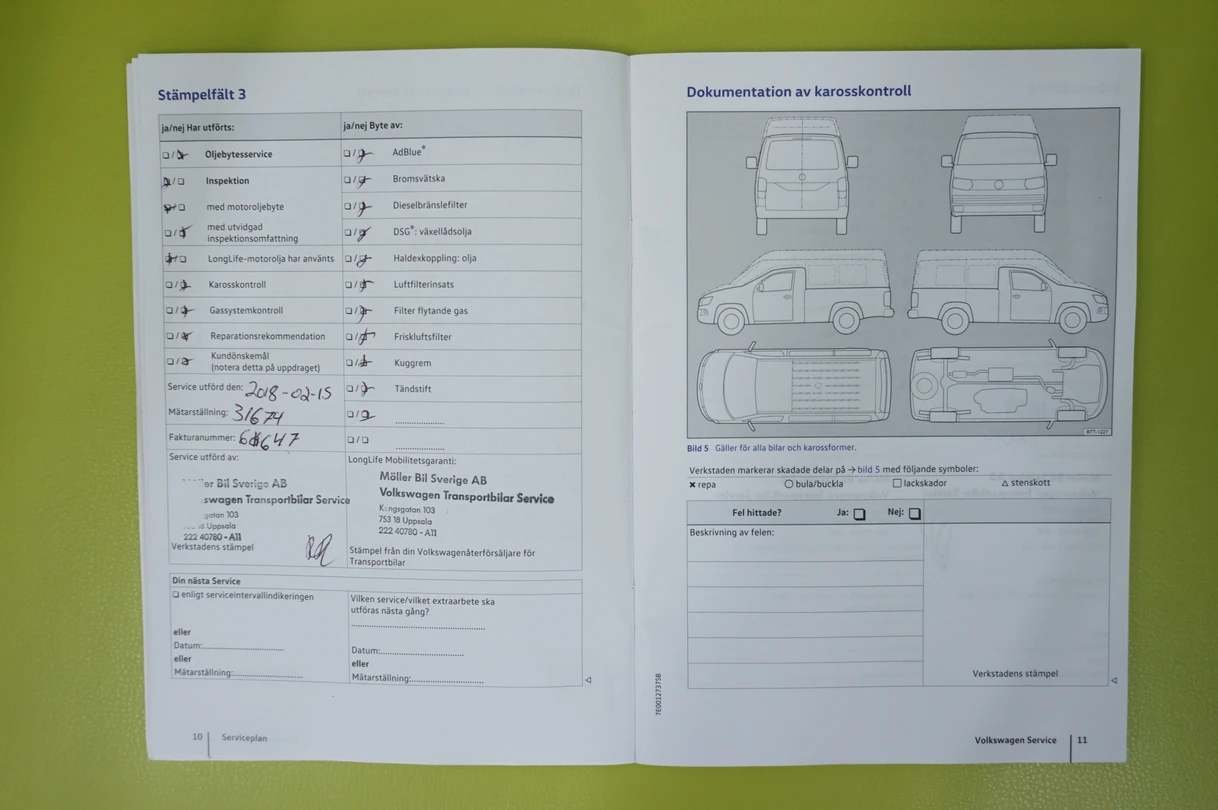 Stämpelfält 3
ja/nej Har utförts:
ja/nej Byte av:
Oljebytesservice
AdBlue®
Inspektion
Bromsvätska
med motoroljebyte
Dieselbränslefilter
med utvidgad
inspektionsomfattning
DSG®: växellådsolja
LongLife-motorolja har använts
Haldexkoppling: olja
Karosskontroll
Luftfilterinsats
Gassystemkontroll
Filter flytande gas
Reparationsrekommendation
Friskluftsfilter
Kundönskemål
(notera detta på uppdraget)
Kuggrem
Service utförd den: 2018-02-15
Tändstift
Mätarställning: 31674
Fakturanummer:
Service utförd av:
er Bil Sverige AB
swagen Transportbilar Service
gatan 103
Uppsala
222 40780 - A11
Verkstadens stämpel
LongLife Mobilitetsgaranti:
Möller Bil Sverige AB
Volkswagen Transportbilar Service
Kungsgatan 103
753 18 Uppsala
222 40780 - A11
Stämpel från din Volkswagenåterförsäljare för
Transportbilar
Din nästa Service
enligt serviceintervallindikeringen
eller
Datum:
eller
Mätarställning:
Vilken service/vilket extraarbete ska
utföras nästa gång?
Datum:
eller
Mätarställning:
10 Serviceplan
Dokumentation av karosskontroll
BTT-1227
Bild 5 Gäller för alla bilar och karossformer.
Verkstaden markerar skadade delar på → bild 5 med följande symboler:
× repa ○ bula/buckla □ lackskador △ stenskott
Fel hittade? Ja: Nej:
Beskrivning av felen:
Verkstadens stämpel
7E0012737SB
Volkswagen Service 11